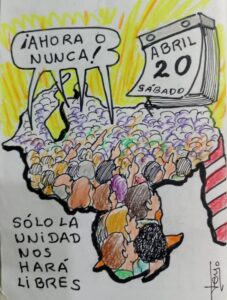 ¡AHORA O
NUNCA!
ABRIL
20
SÁBADO
SÓLO LA
UNIDAD
NOS
HARÁ
LIBRES